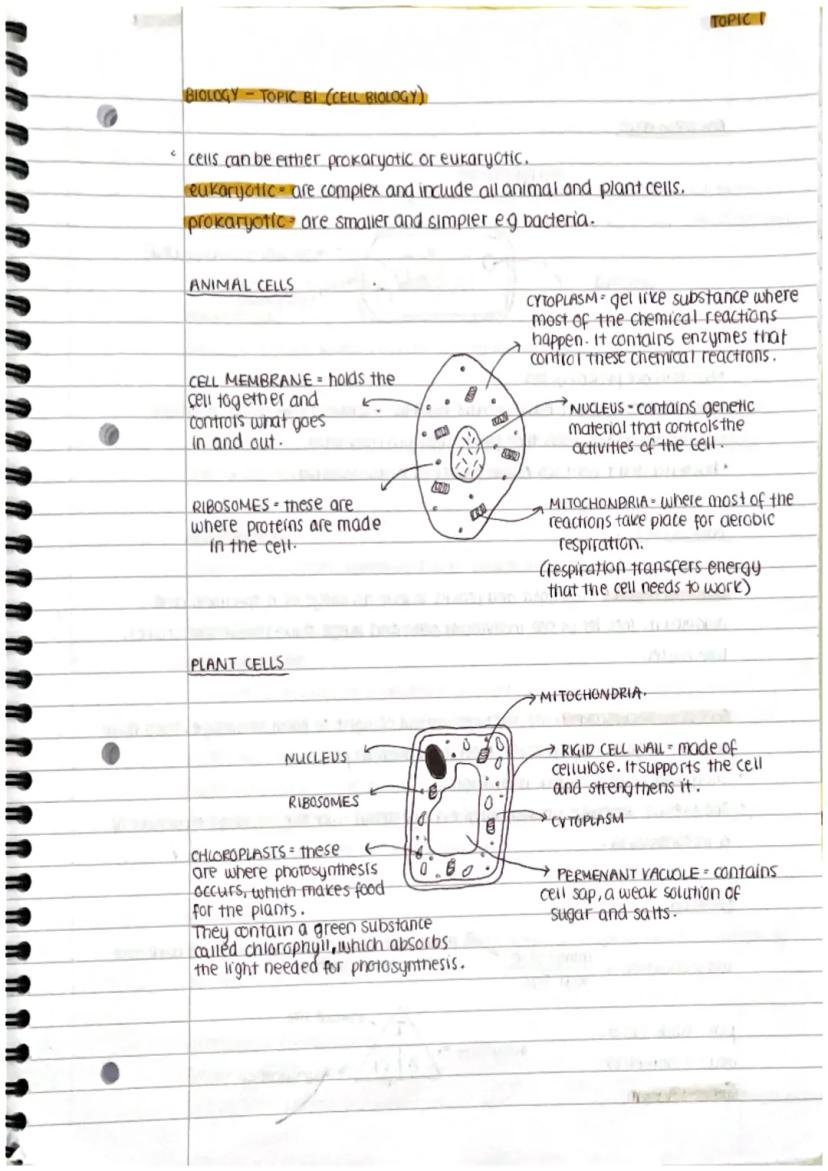 TOPIC 1
BIOLOGY - TOPIC B1 (CELL BIOLOGY)
cells can be either prokaryotic or eukaryotic.
eukaryotic = are complex and include all animal and plant cells.
prokaryotic = are smaller and simpler eg bacteria.
ANIMAL CELLS
CYTOPLASM = gel like substance where
most of the chemical reactions
happen. It contains enzymes that
control these chemical reactions.
CELL MEMBRANE = holds the
cell together and
controls what goes
in and out.
NUCLEUS = contains genetic
material that controls the
activities of the cell.
RIBOSOMES = these are
where proteins are made
in the cell.
MITOCHONDRIA = where most of the
reactions take place for aerobic
respiration.
(respiration transfers energy
that the cell needs to work)
PLANT CELLS
MITOCHONDRIA.
NUCLEUS
RIGID CELL WALL = made of
cellulose. It supports the cell
and strengthens it.
RIBOSOMES
CYTOPLASM
CHLOROPLASTS = these
are where photosynthesis
occurs, which makes food
for the plants.
They contain a green substance
called chlorophyll, which absorbs
the light needed for photosynthesis.
PERMENANT VACUOLE = contains
cell sap, a weak solution of
sugar and salts.